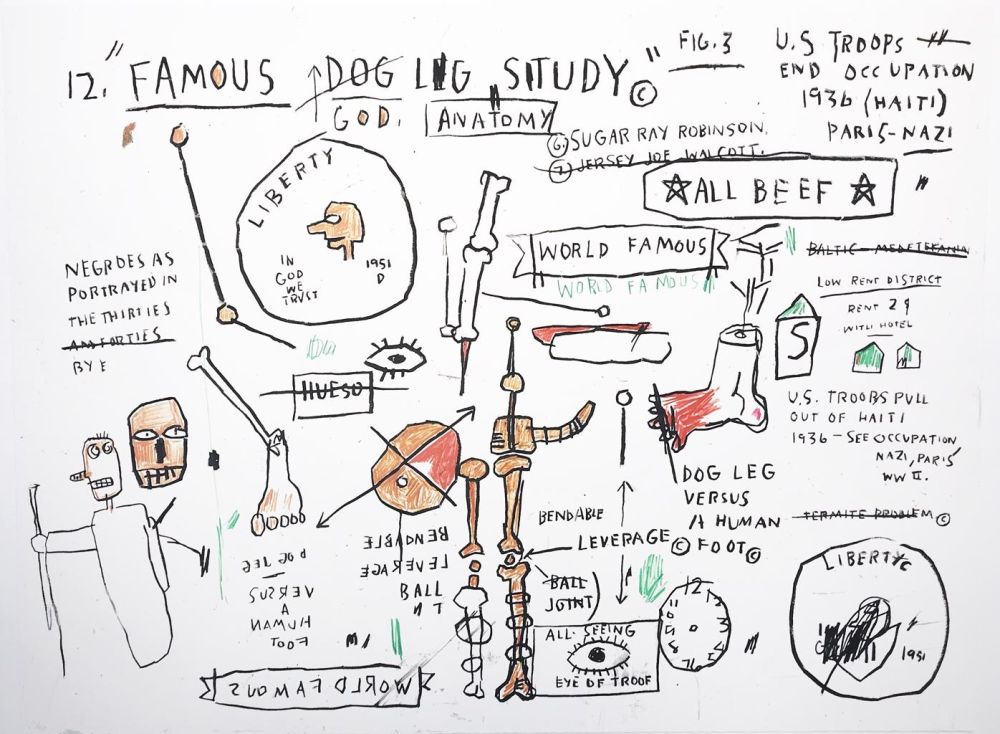 12. "FAMOUS DOG LEG STUDY" ©
GOD.
ANATOMY
FIG. 3
U.S TROOPS
END OCCUPATION
1936 (HAITI)
PARIS-NAZI
6. SUGAR RAY ROBINSON.
7. JERSEY JOE WALCOTT.
ALL BEEF
LIBERTY
IN
GOD
WE
TRVST
1951
D
WORLD FAMOUS
WORLD FAMOUS
NEGROES AS
PORTRAYED IN
THE THIRTIES
AND FORTIES
BY E
HUESO
LOW RENT DISTRICT
RENT 2
HOTEL
S
U.S. TROOBS PULL
OUT OF HAITI
1936 - SEE OCCUPATION
NAZI, PARIS
WW II.
TERMITE PROBLEM ©
DOG LEG
VERSUS
A HUMAN
FOOT ©
BENDABLE
LEVERAGE ©
BALL
JOINT)
BENDABLE
LEVERAGE
BALL
N T
DOG LEG
VERSUS
A
HUMAN
FOOT
WORLD FAMOUS
ALL-SEEING
EYE OF TROOF
12
LIBERTY
1951